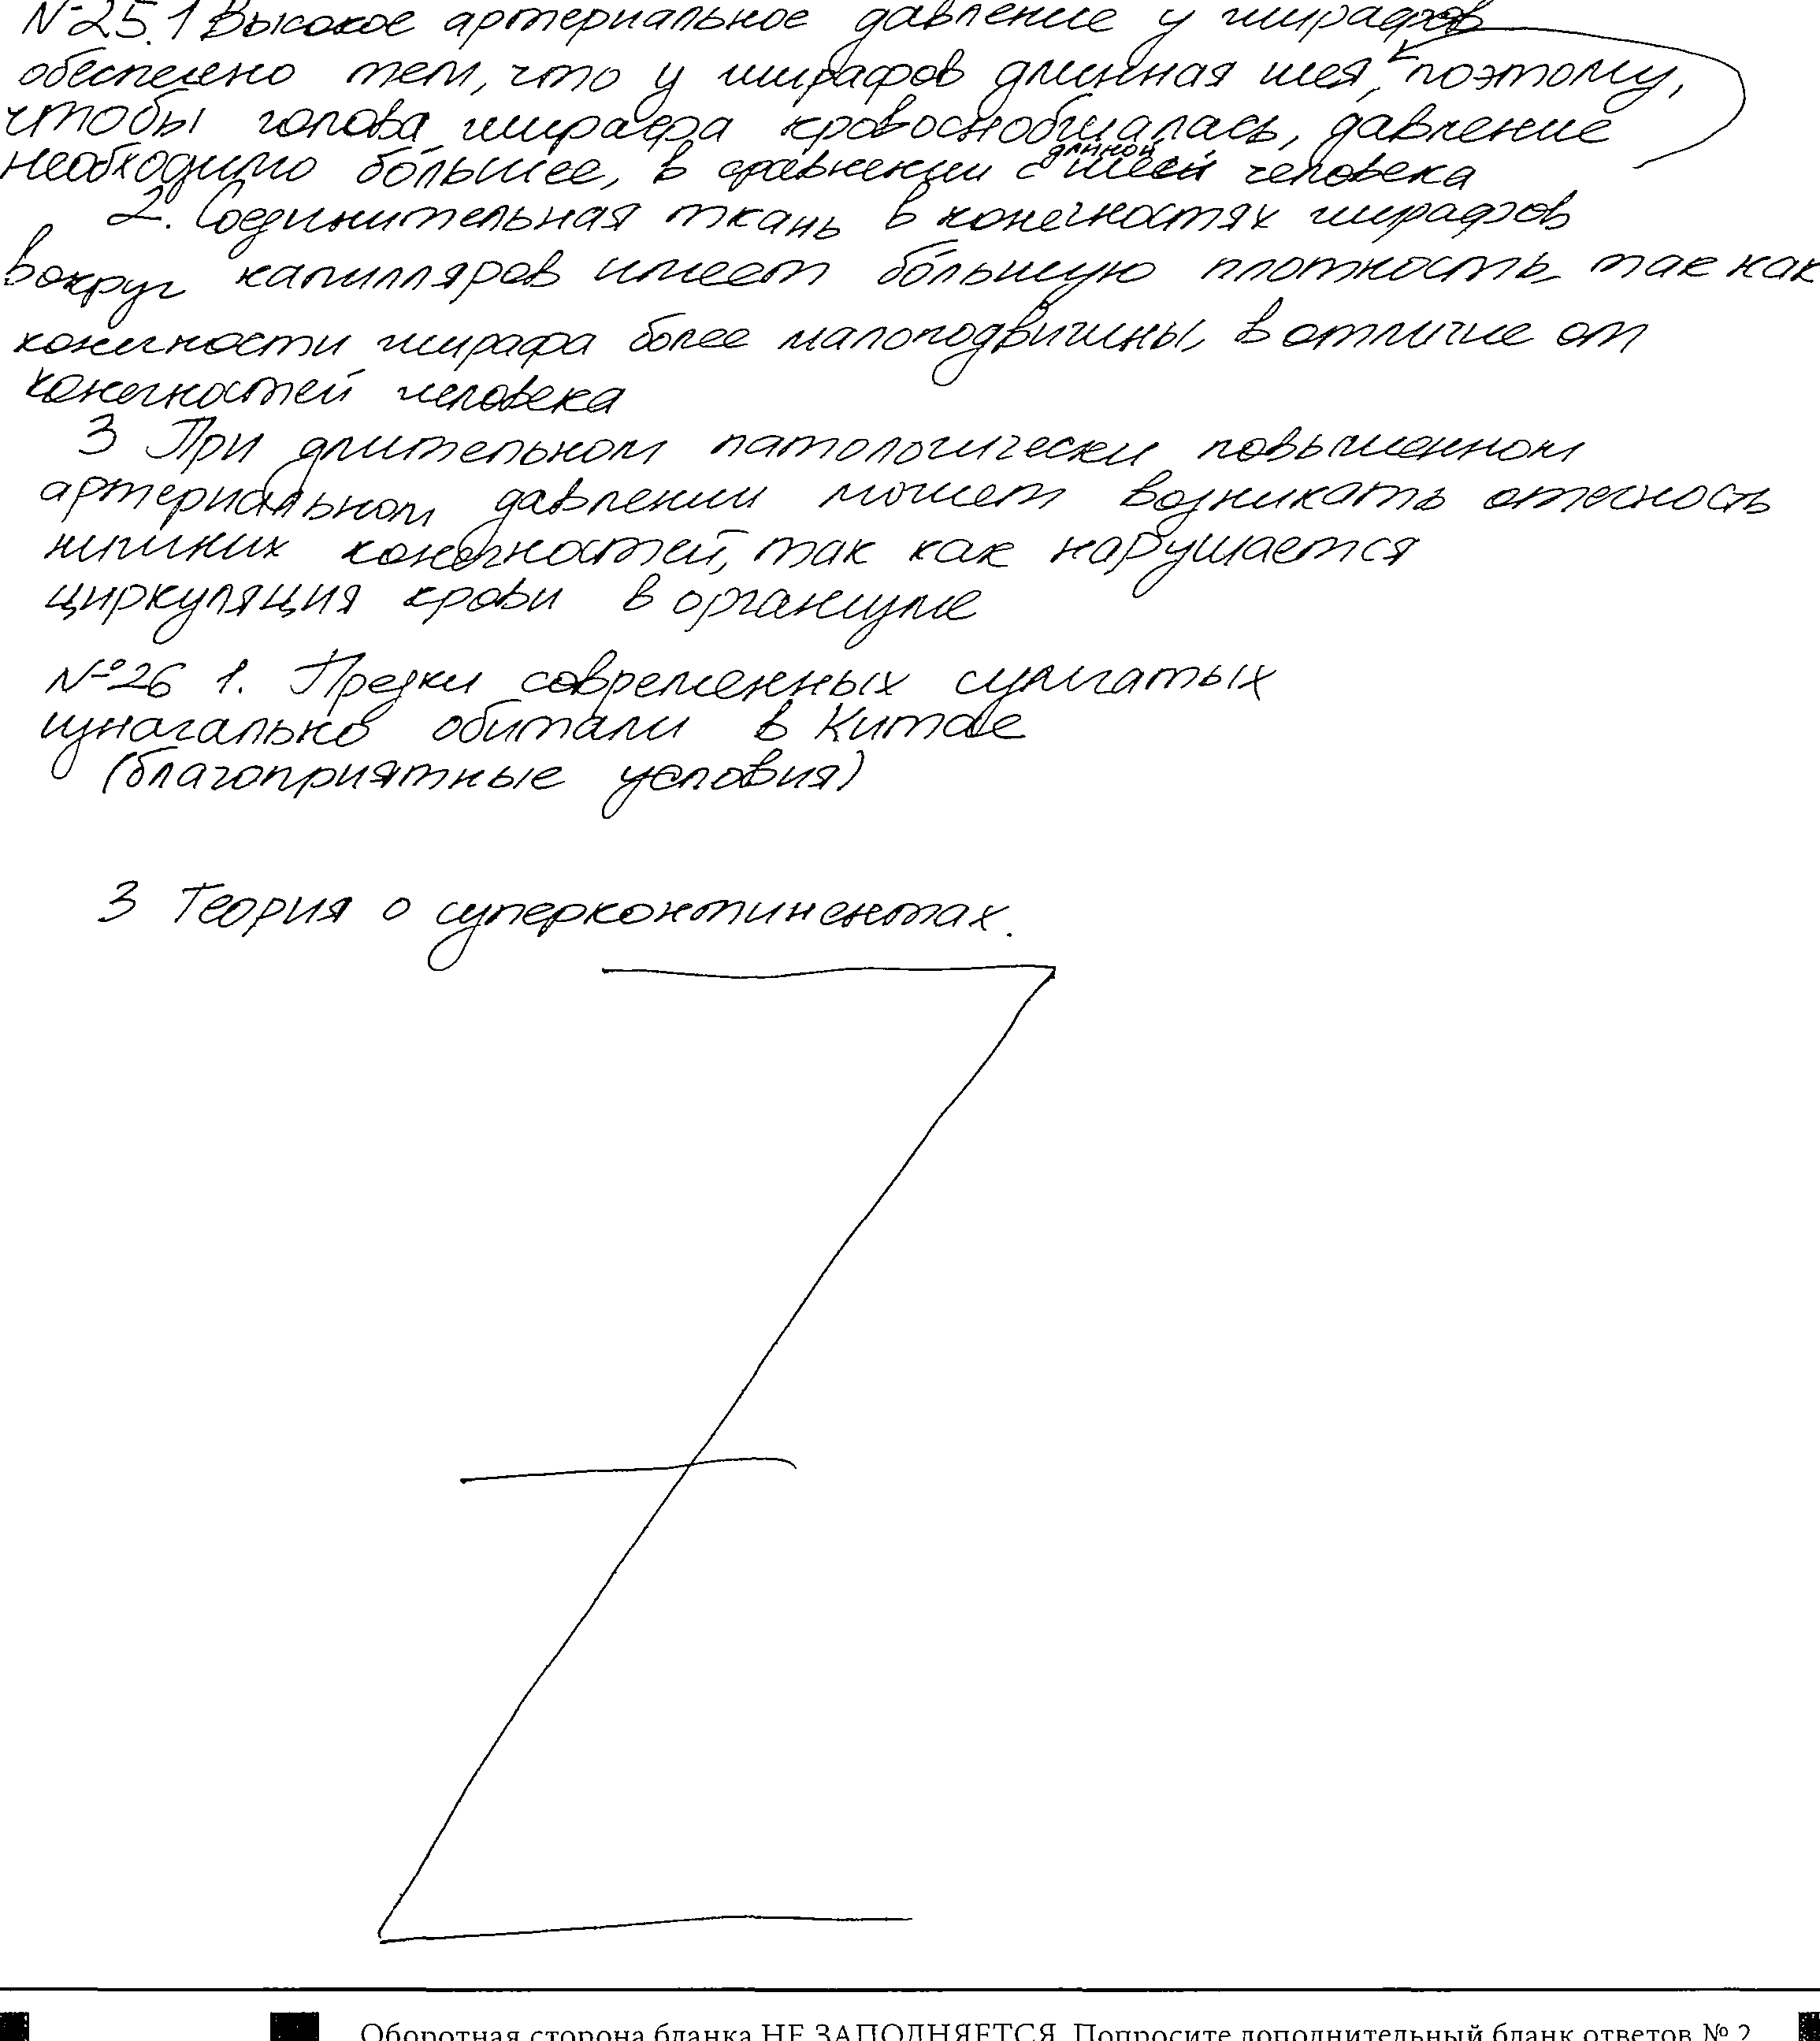 №25.1 Высокое артериальное давление у жирафов
обеспечено тем, что у жирафов длинная шея, поэтому,
чтобы голова жирафа кровоснобжалась, давление
необходимо бо́льшее, в сравнении с длиной шеей человека
2. Соединительная ткань в конечностях жирафов
вокруг капилляров имеет бо́льшую плотность, так как
конечности жирафа более малоподвижны, в отличие от
конечностей человека
3 При длительном патологически повышенном
артериальном давлении может возникать отечность
нижних конечностей, так как нарушается
циркуляция крови в организме
№26 1. Предки современных сумчатых
изначально обитали в Китае
(благоприятные условия)
3 Теория о суперконтинентах.
Оборотная сторона бланка НЕ ЗАПОЛНЯЕТСЯ. Попросите дополнительный бланк ответов № 2